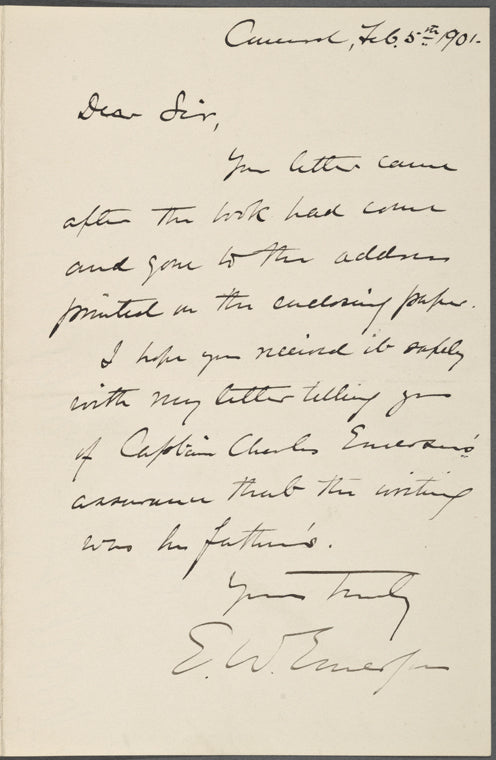 Concord, Feb. 5th 1901.
Dear Sir,
Your letter came
after the book had come
and gone to the address
printed on the enclosing paper.
I hope you received it safely
with my letter telling you
of Captain Charles Emerson's
assurance that the writing
was his father's.
Yours truly
E. W. Emerson